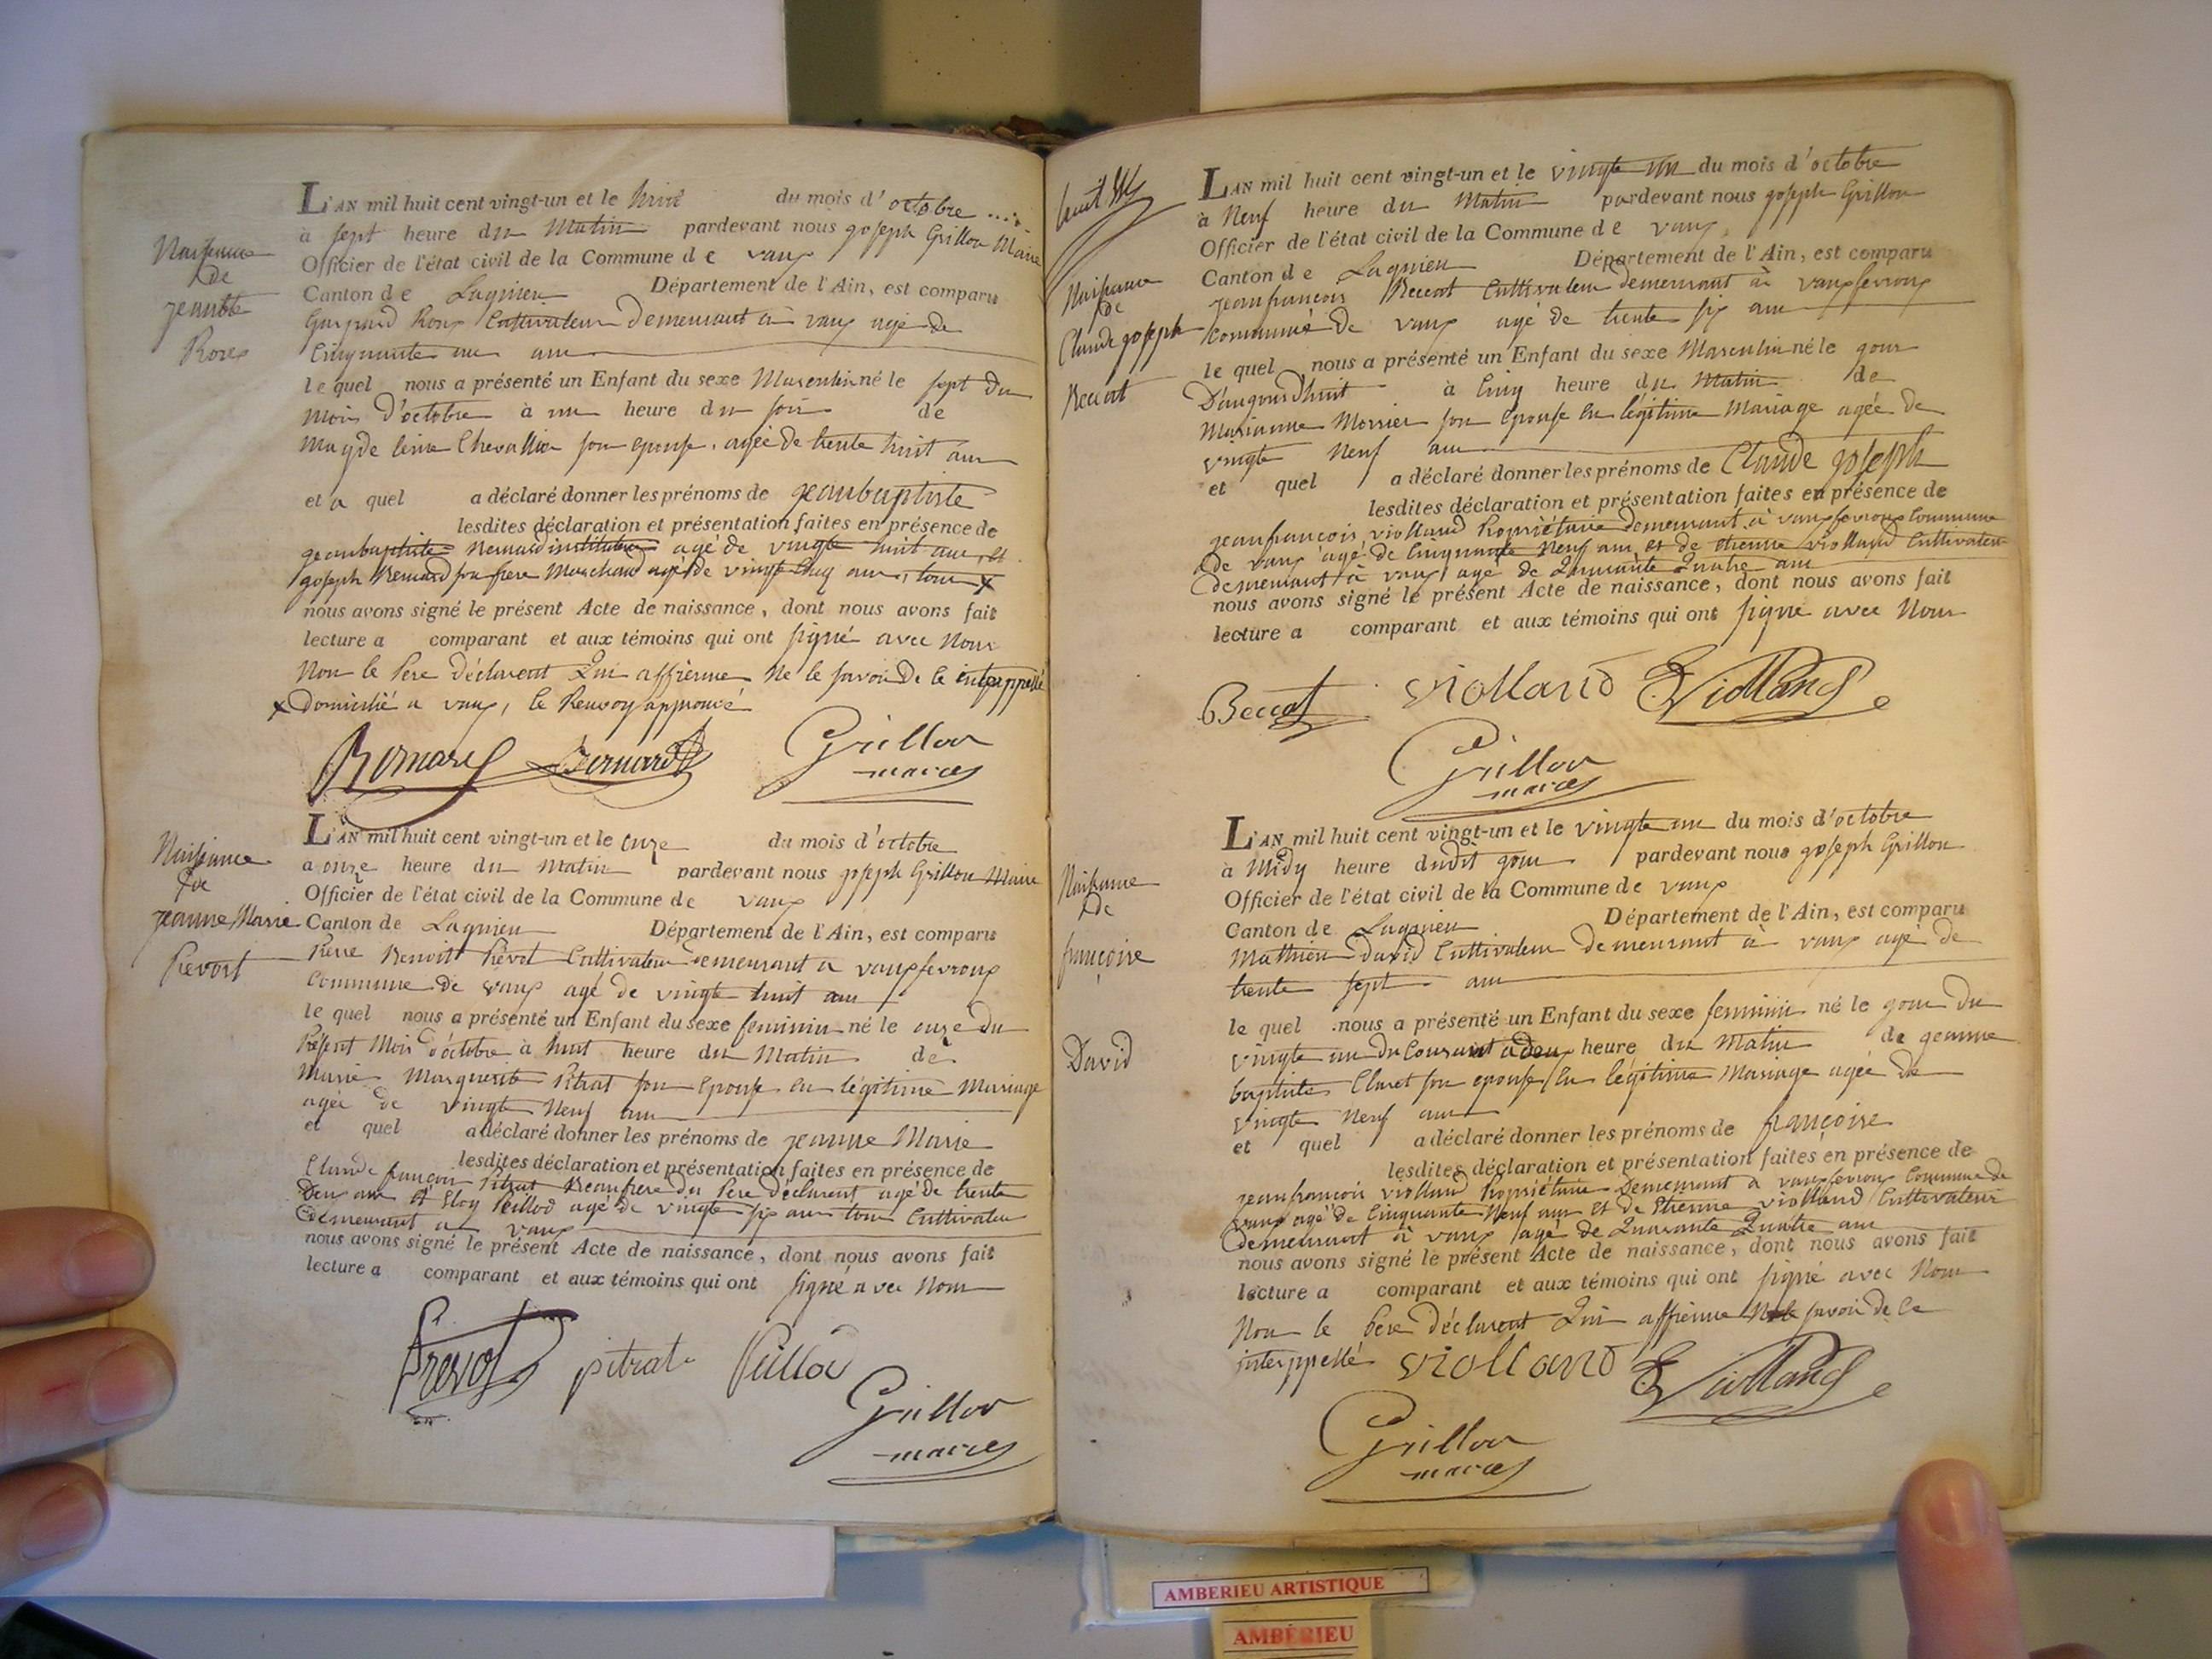 Naissance
de
jeanbte
Roux
L'AN mil huit cent vingt-un et le huit du mois d'octobre
à sept heure du Matin pardevant nous joseph Grillon Maire
Officier de l'état civil de la Commune de vaux
Canton de Lagnieu Département de l'Ain, est comparu
Gaspard Roux Cultivateur Demeurant à vaux agé de
Cinquante un ans
le quel nous a présenté un Enfant du sexe Masculin né le sept du
mois d'octobre à une heure du soir de
Magdeleine Chevallier son epouse, agée de trente huit ans
et a quel a déclaré donner les prénoms de jeanbaptiste
lesdites déclaration et présentation faites en présence de
jeanbaptiste Bernard instituteur agé de vingte huit ans, et
joseph Bernard son frere Marchand agé de vingt cinq ans, tous x
nous avons signé le présent Acte de naissance, dont nous avons fait
lecture a comparant et aux témoins qui ont signé avec Nous
Non le Pere déclarant Qui affirme Ne le savoir De ce interppellé
x Domicilié a vaux, le Renvoy approuvé
Bernard Bernard Grillon
maire
Naissance
de
jeanne Marie
Prevost
L'AN mil huit cent vingt-un et le onze du mois d'octobre
a onze heure du Matin pardevant nous joseph Grillon Maire
Officier de l'état civil de la Commune de vaux
Canton de Lagnieu Département de l'Ain, est comparu
Pierre Benoit Prévot Cultivateur Demeurant a vauxfevroux
Commune de vaux agé de vingte huit ans
le quel nous a présenté un Enfant du sexe feminin né le onze du
Présent Mois d'octobre à huit heure du Matin de
Marie Marguerite Pitrat son Epouse en légitime Mariage
agée de vingte Neuf ans
et quel a déclaré donner les prénoms de jeanne Marie
lesdites déclaration et présentation faites en présence de
Claude françois Pitrat Beaufrere du Pere déclarant agé de trente
Deux ans et Eloy Peillod agé de vingte six ans tous Cultivateur
demeurant a vaux
nous avons signé le présent Acte de naissance, dont nous avons fait
lecture a comparant et aux témoins qui ont signé avec Nous
Prevot pitrat Peillod
Grillon
maire
huit
Naissance
de
Claude joseph
Beccat
L'AN mil huit cent vingt-un et le vingte un du mois d'octobre
à Neuf heure du Matin pardevant nous joseph Grillon
Officier de l'état civil de la Commune de vaux,
Canton de Lagnieu Département de l'Ain, est comparu
jeanfrancois Beccat Cultivateur demeurant à vauxfevroux
Commune de vaux agé de trente six ans
le quel nous a présenté un Enfant du sexe Masculin né le jour
D'aujourd'huit à Cinq heure du Matin de
Marianne Monier son Epouse en légitime Mariage agée de
vingte Neuf ans
et quel a déclaré donner les prénoms de Claude joseph
lesdites déclaration et présentation faites en présence de
jeanfrancois violland Propriétaire demeurant à vauxfevroux Commune
de vaux agé de Cinquante Neuf ans et de etienne violland Cultivateur
demeurant à vaux agé de Quarante Quatre ans
nous avons signé le présent Acte de naissance, dont nous avons fait
lecture a comparant et aux témoins qui ont signé avec Nous
Beccat violland E Violland
Grillon
maire
Naissance
de
françoise
David
L'AN mil huit cent vingt-un et le vingte un du mois d'octobre
à Midy heure dudit jour pardevant nous joseph Grillon
Officier de l'état civil de la Commune de vaux
Canton de Lagnieu Département de l'Ain, est comparu
Mathieu David Cultivateur Demeurant à vaux agé de
trente sept ans
le quel nous a présenté un Enfant du sexe feminin né le jour du
vingte un du Courant à deux heure du Matin de jeanne
baptiste Claret son epouse en légitime Mariage agée de
vingte Neuf ans
et quel a déclaré donner les prénoms de françoise
lesdites déclaration et présentation faites en présence de
jeanfrancois violland Propriétaire Demeurant a vauxfevroux Commune de
vaux agé de Cinquante Neuf ans et de Etienne violland Cultivateur
demeurant à vaux agé de Quarante Quatre ans
nous avons signé le présent Acte de naissance, dont nous avons fait
lecture a comparant et aux témoins qui ont signé avec Nous
Non le Pere déclarant Qui affirme Ne le savoir de ce
interppellé violland E Violland
Grillon
maire
AMBERIEU ARTISTIQUE
AMBÉRIEU